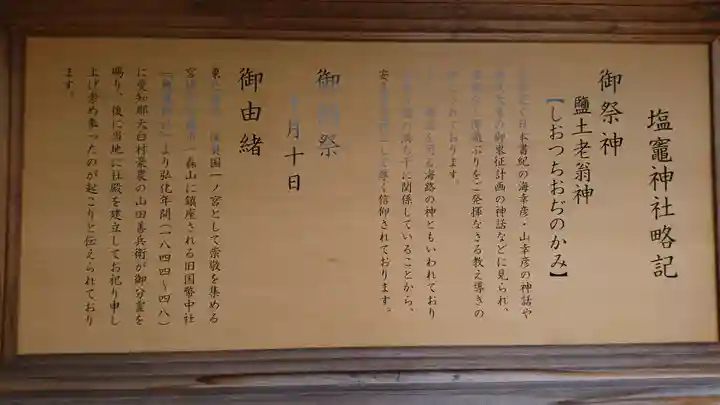 塩竈神社略記
御祭神
鹽土老翁神
【しおつちおぢのかみ】
日本書紀の海幸彦・山幸彦の神話や
の御東征計画の神話などに見られ、
ぶりをご発揮なさる教え導きの
られております。
海路の神ともいわれており
満ち干に関係していることから、
安 として厚く信仰されております。
御 祭
月十日
御由緒
東 国一ノ宮として崇敬を集める
宮 一森山に鎮座される旧国幣中社
より弘化年間(一八四四〜四八)
に愛知郡大臼村豪農の山田善兵衛が御分霊を
賜り、後に当地に社殿を建立してお祀り申し
上げ崇め奉ったのが起こりと伝えられており
ます。